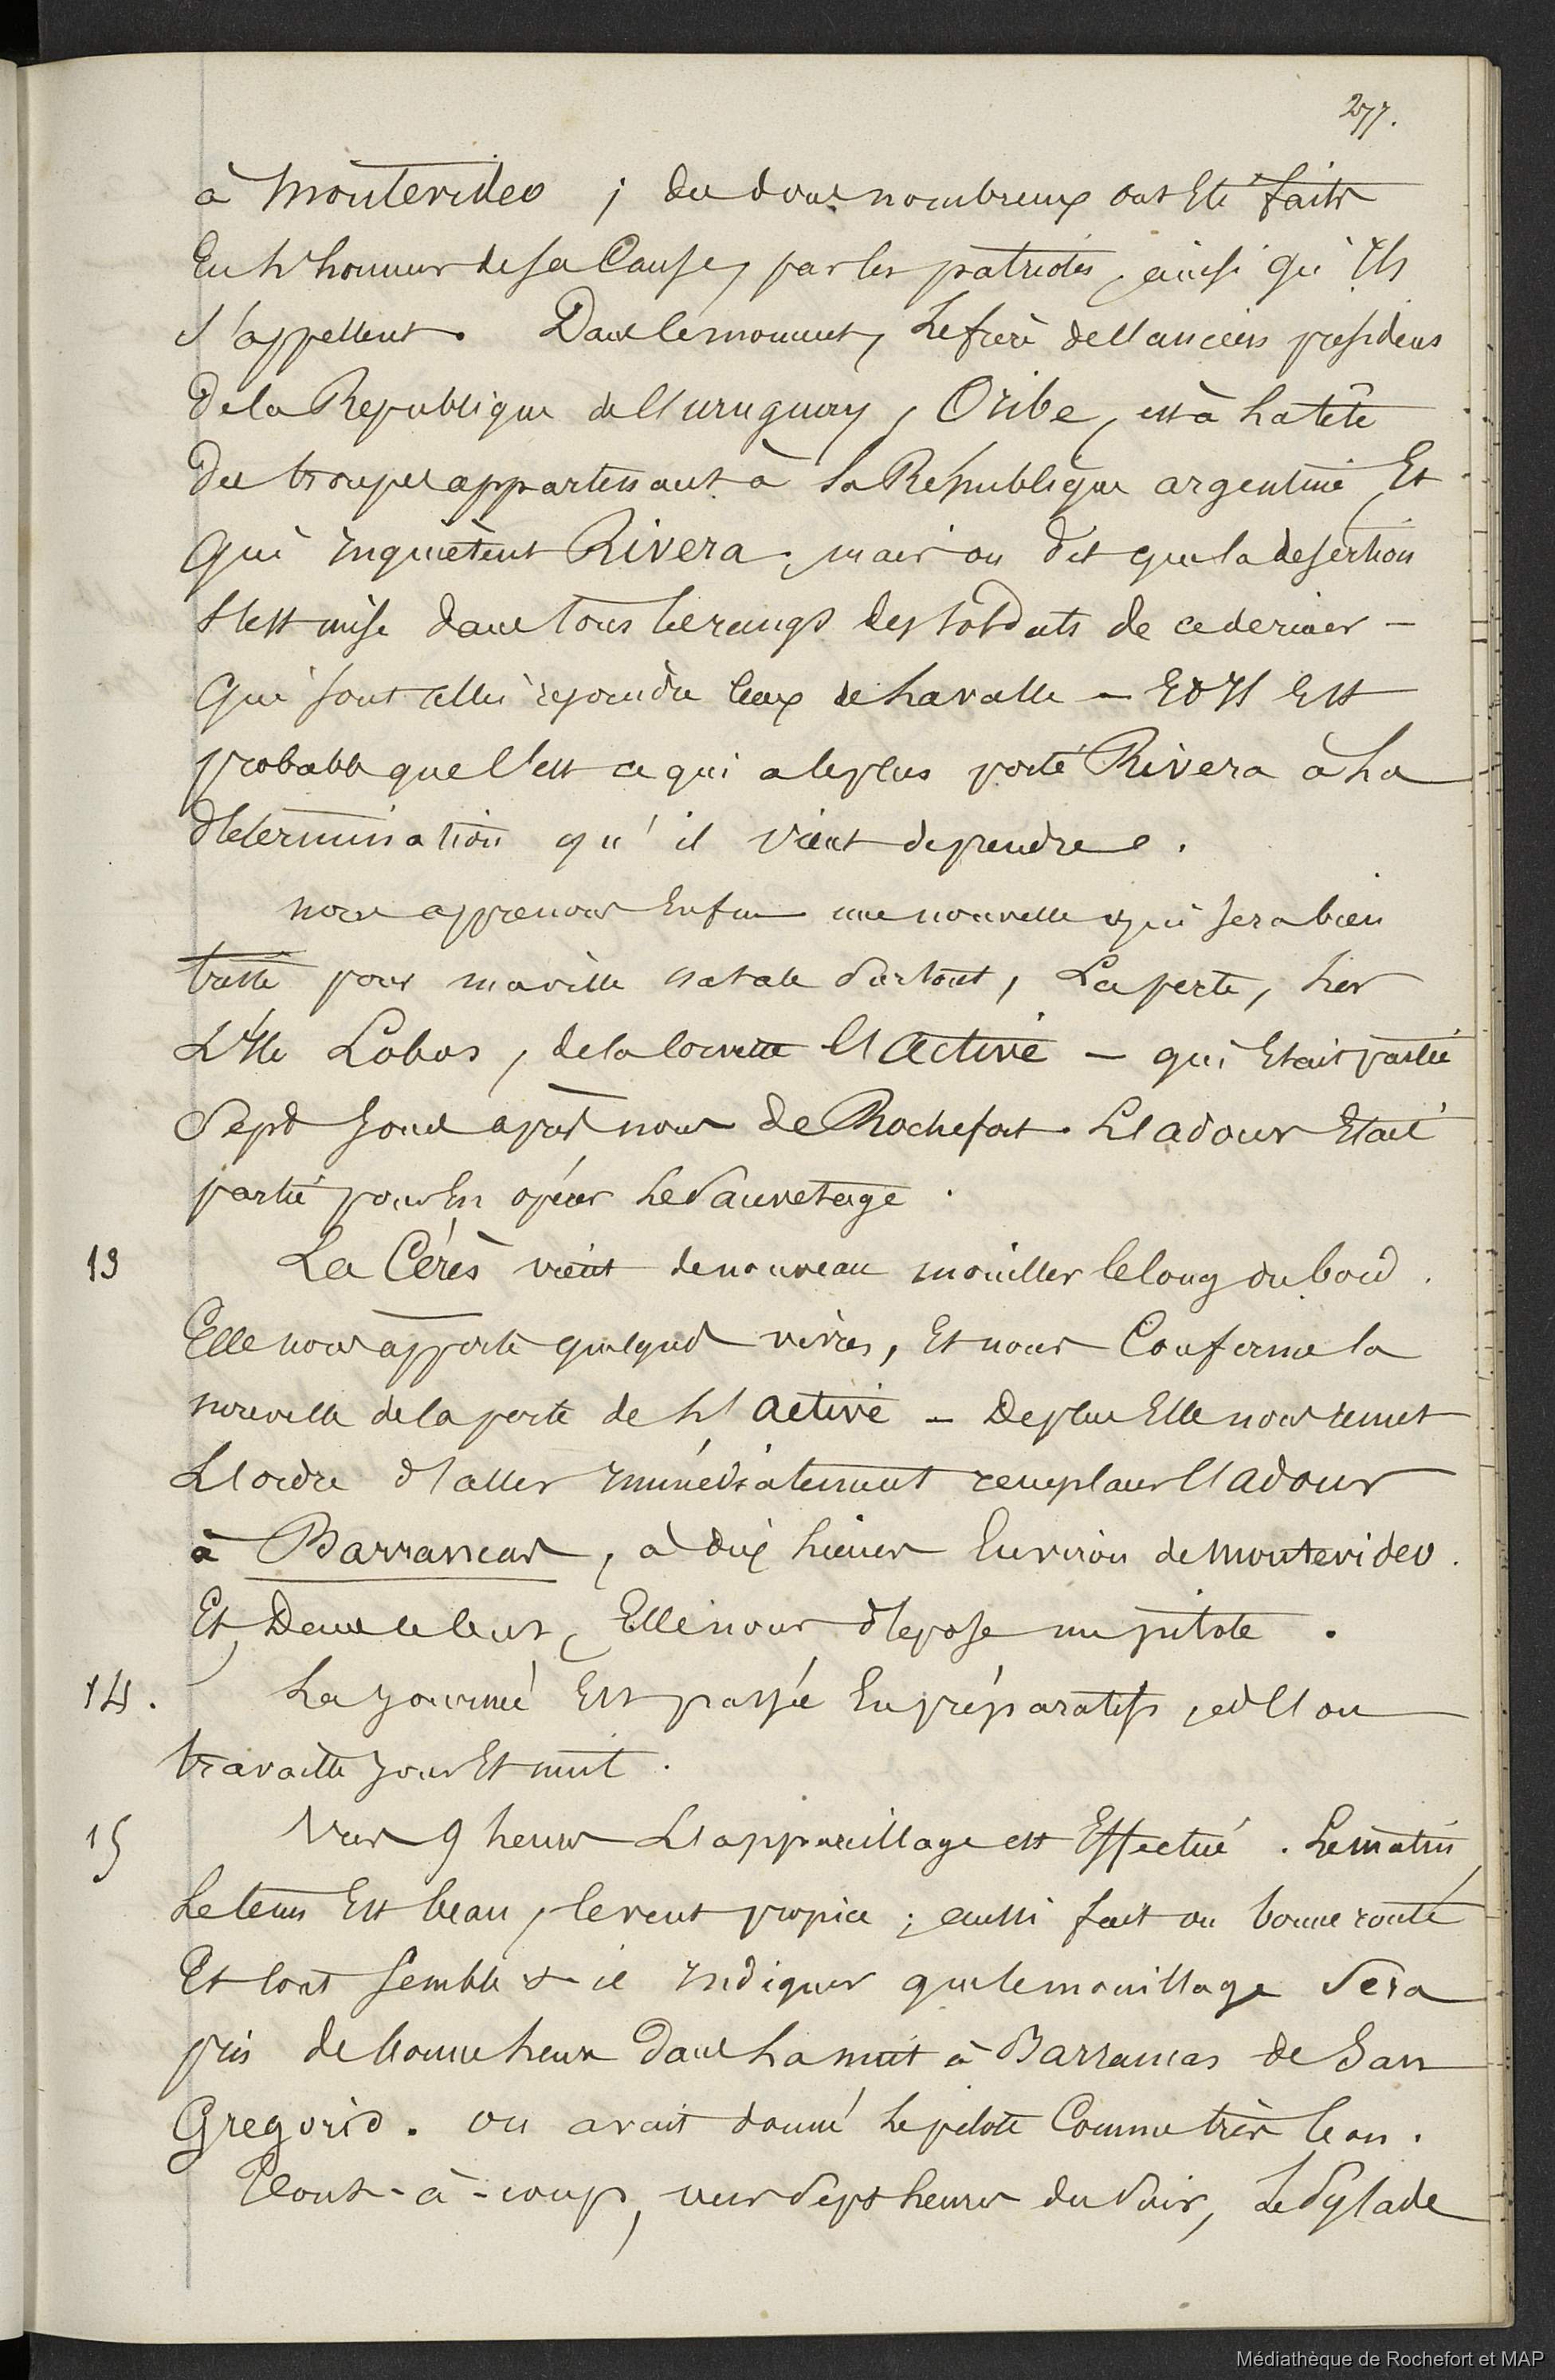 277.
à Montevideo ; des dons nombreux ont Eté faits
En L'honneur de sa Cause, par les patriotes, ainsi qu'Ils
s'appellent. Dans le moment, Le frère de l'ancien président
De la République de l'uruguay, Oribe, est à La tête
Des troupes appartenant à La République argentine Et
Qui Inquiètent Rivera, mais on dit que la désertion
s'est mise dans tous les rangs des soldats de ce dernier –
Qui sont allés rejoindre Ceux de Lavalle – Et Il Est
probable que C'est ce qui a le plus porté Rivera à La
détermination qu'il vient de prendre.
nous apprenons Enfin une nouvelle qui sera bien
triste pour ma ville natale surtout, La perte, sur
L'Ile Lobos, de la corvette l'Active – qui Etait partie
Sept jours après nous de Rochefort. L'adour Etait
partie pour En opérer Le Sauvetage.
13 La Cérès vient de nouveau mouiller le long du bord.
Elle nous apporte quelques vivres, Et nous Confirme la
nouvelle de la perte de L'active – De plus Elle nous remet
L'ordre d'aller Immédiatement remplacer l'adour
à Barrancas, à dix lieues Environ de Montevideo.
Et, Dans ce but, Elle nous dépose un pilote.
14. La Journée Est passée En préparatifs, et l'on
travaille jour Et nuit.
15 Vers 9 heures L'appareillage est Effectué. Le matin
Le tems Est beau, le vent propice ; aussi fait on bonne route
Et tout semble t-il Indiquer que le mouillage Sera
pris de bonne heure Dans La nuit à Barrancas de San
Gregorio. On avait donné Le pilote Comme très bon.
Tout-à-coup, vers Sept heures du Soir, Le Pylade
Médiathèque de Rochefort et MAP